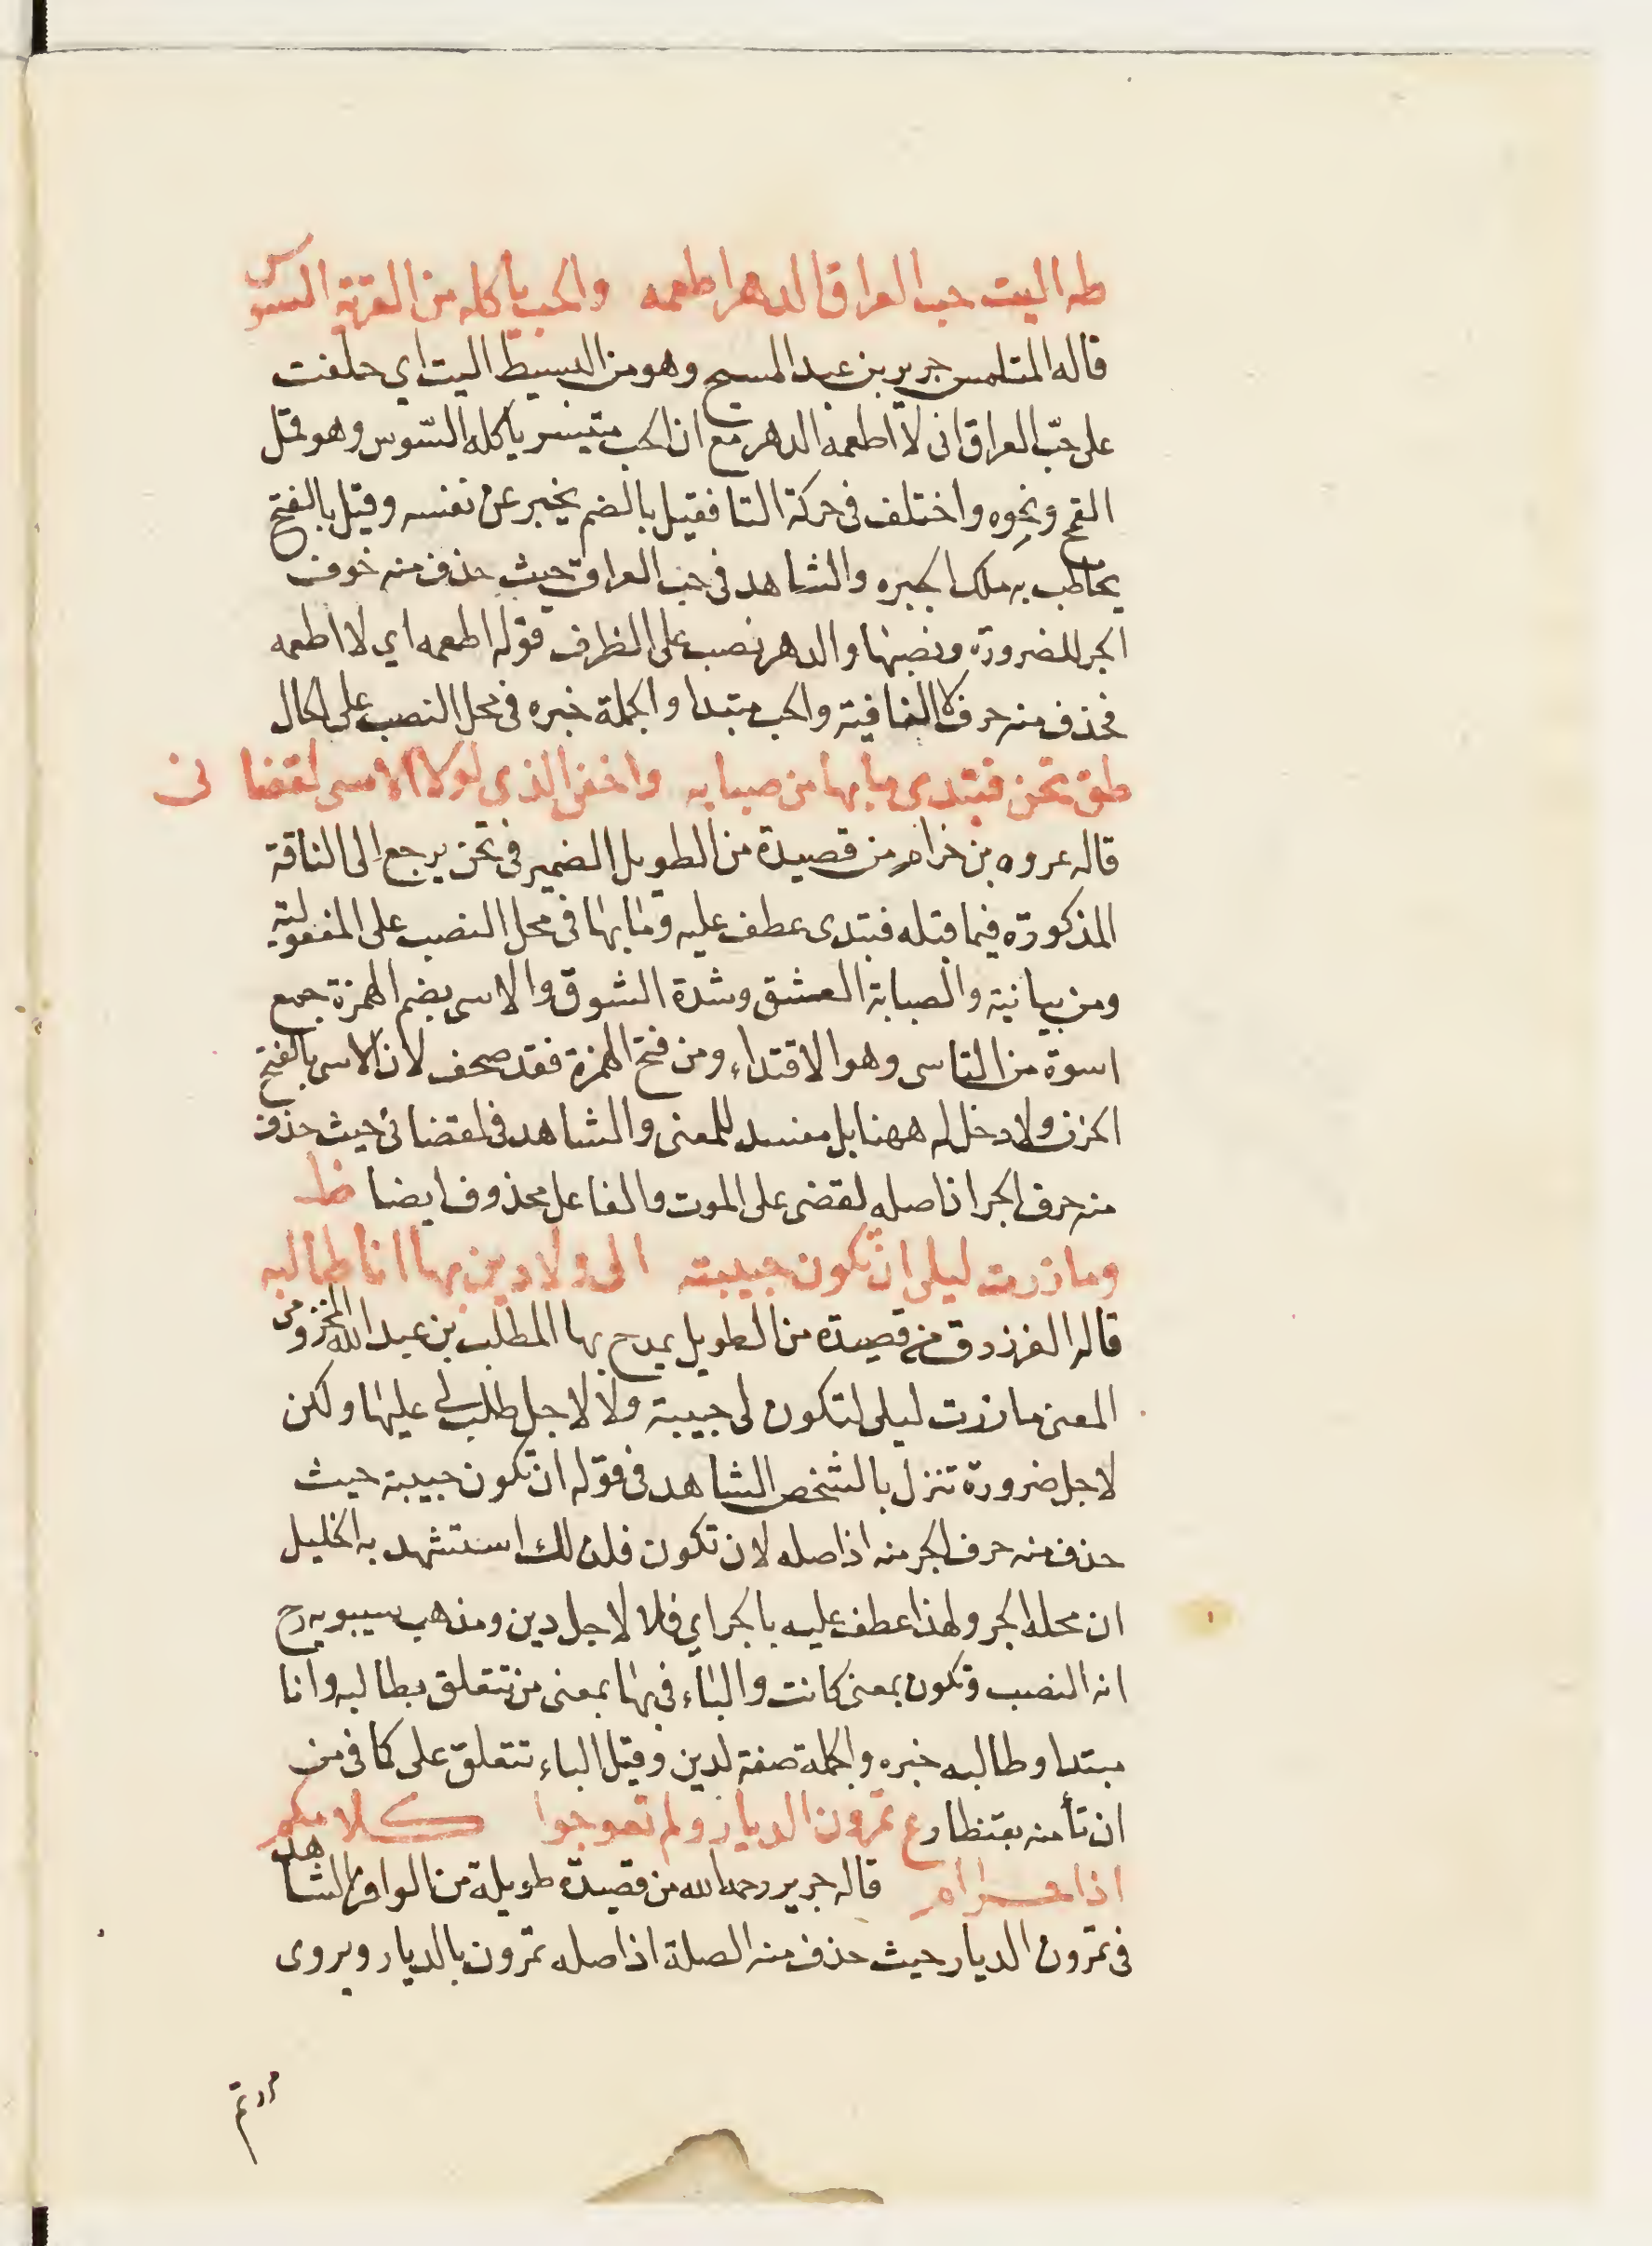 طه اليت حب العراق الدهر اطعمه والحب ياكله من القرية السوس
قاله المتلمس جرير بن عبد المسيح وهو من البسيط اليت اي حلفت
على حبّ العراق انى لا اطعمه الدهر مع ان الحب متيسر ياكله السّوس وهو قمل
القمح ونحوه واختلف فى حركة التا فقيل بالضم يخبر عن نفسه وقيل بالفتح
يخاطب به ملك الحيره والشاهد فى حب العراق حيث حذف منه حرف
الجر للضرورة ونصبها والدهر نصب على الظرف قوله اطعمه اي لا اطعمه
فحذف منه حرف لا النافية والحب مبتدا والجملة خبره فى محل النصب على الحال
طق تحن فتبدى ما بها من صبابه واخفى الذى لولا الاسى لقضا نى
قاله عروه بن حزام من قصيدة من الطويل الضمير فى تحن يرجع الى الناقة
المذكورة فيما قبله فتبدى عطف عليه وما بها فى محل النصب على المفعولية
ومن بيانية والصبابة العشق وشدة الشوق والاسى بضم الهمزة جمع
اسوة من التاسى وهو الاقتداء ومن فتح الهمزة فقد صحف لان الاسى بالفتح
الحزن ولا دخل له ههنا بل مفسد للمعنى والشاهد فى لقضانى حيث حذف
منه حرف الجر اذ اصله لقضى على الموت والفاعل محذوف ايضا ظ
وما زرت ليلى ان تكون حبيبته الى ولا دين بها انا طالبه
قاله الفرزدق من قصيدة من الطويل يمدح بها المطلب بن عبد الله المخزومى
المعنى ما زرت ليلى لتكون لى حبيبة ولا لاجل طلب لى عليها ولكن
لاجل ضرورة تنزل بالشخص الشاهد فى قوله ان تكون حبيبة حيث
حذف منه حرف الجر منه اذ اصله لان تكون فلذلك استشهد به الخليل
ان محله الجر ولهذا عطف عليه بالجر اي فلا لاجل دين ومذهب سيبويه رح
انه النصب وتكون بمعنى كانت والباء فى بها بمعنى من تتعلق بطالبه وانا
مبتدا وطالبه خبره والجملة صفة لدين وقيل الباء تتعلق على كما فى من
ان تأمنه بقنطار ع تمرون الديار ولم تعوجوا كلامكم
اذا حرام قاله جرير رحمه الله من قصيدة طويلة من الوافر الشاهد
فى تمرون الديار حيث حذف منه الصلة اذ اصله تمرون بالديار ويروى